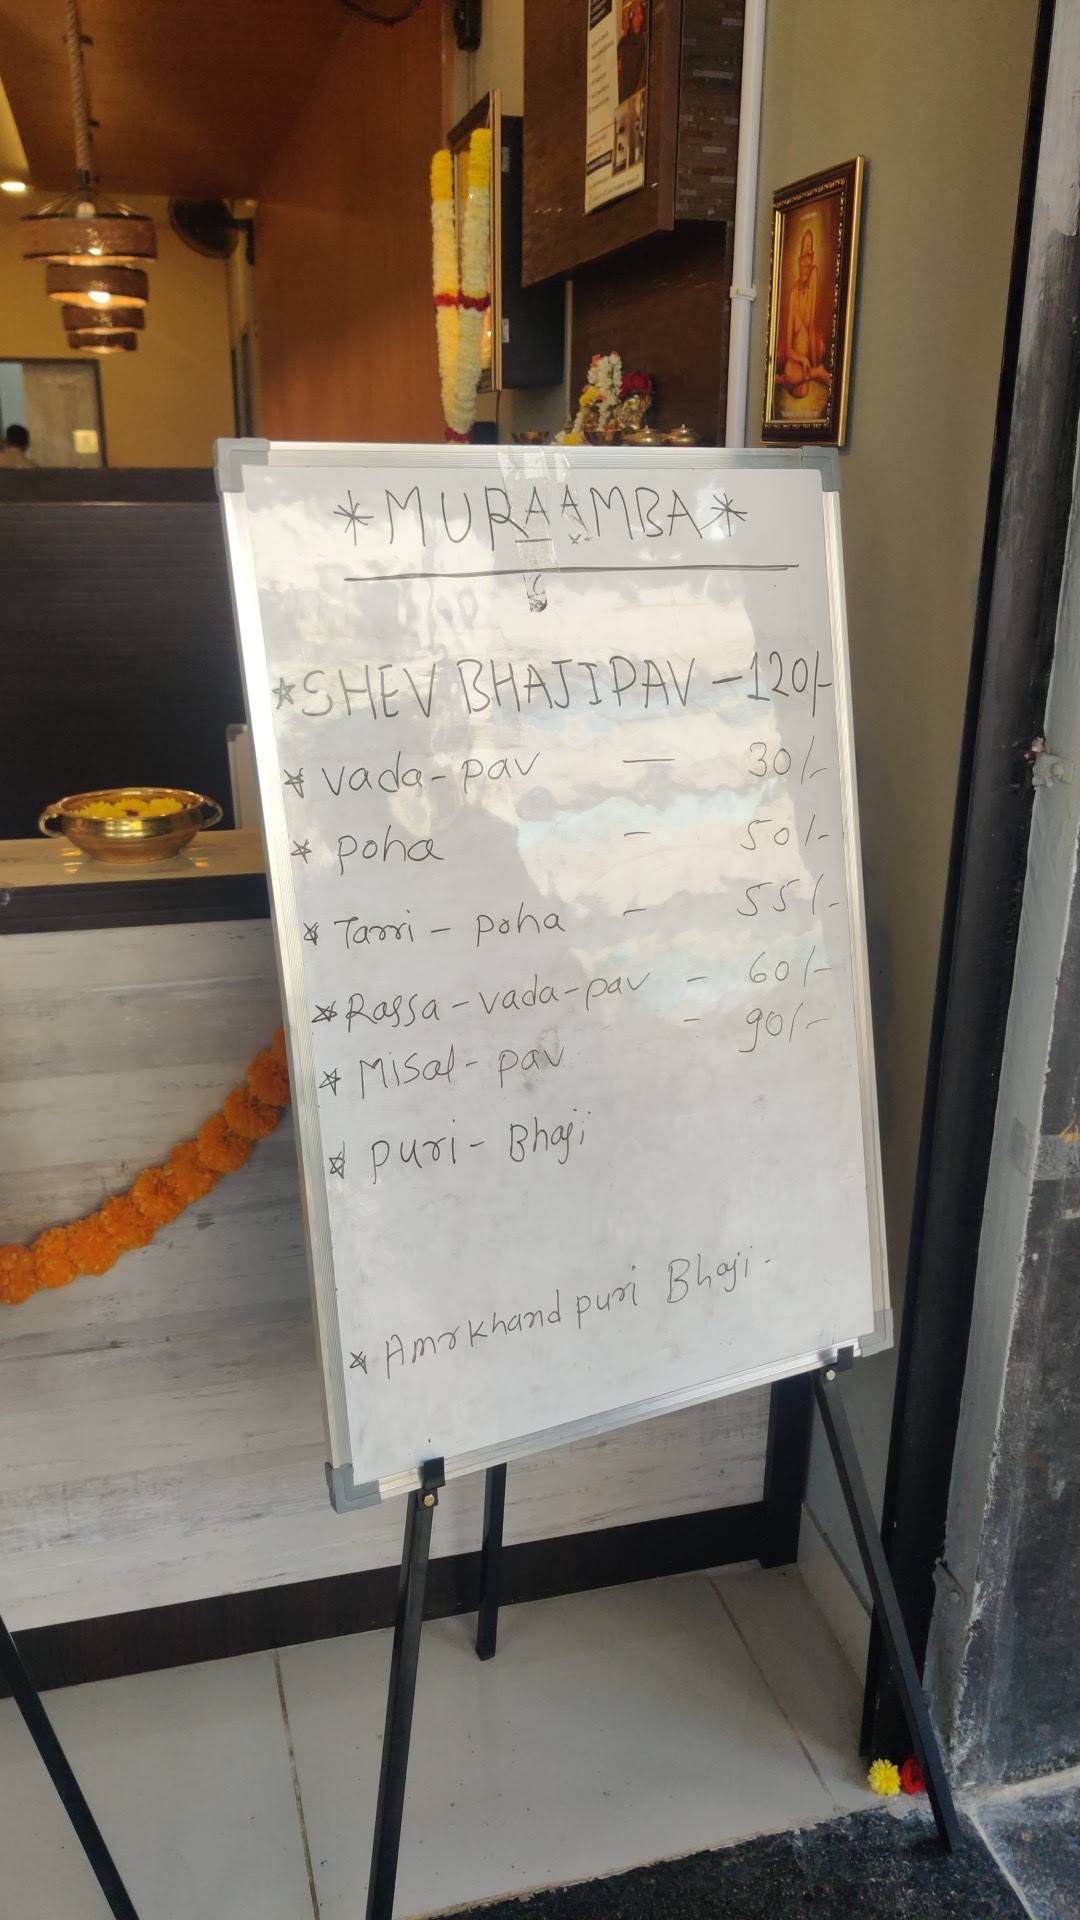 *MURAAMBA*
*SHEV BHAJI PAV - 120/-
* vada-pav — 30/-
* poha - 50/-
* Tarri - poha - 55/-
* Rassa-vada-pav - 60/-
* Misal- pav - 90/-
* puri- Bhaji
* Amrkhand puri Bhaji -